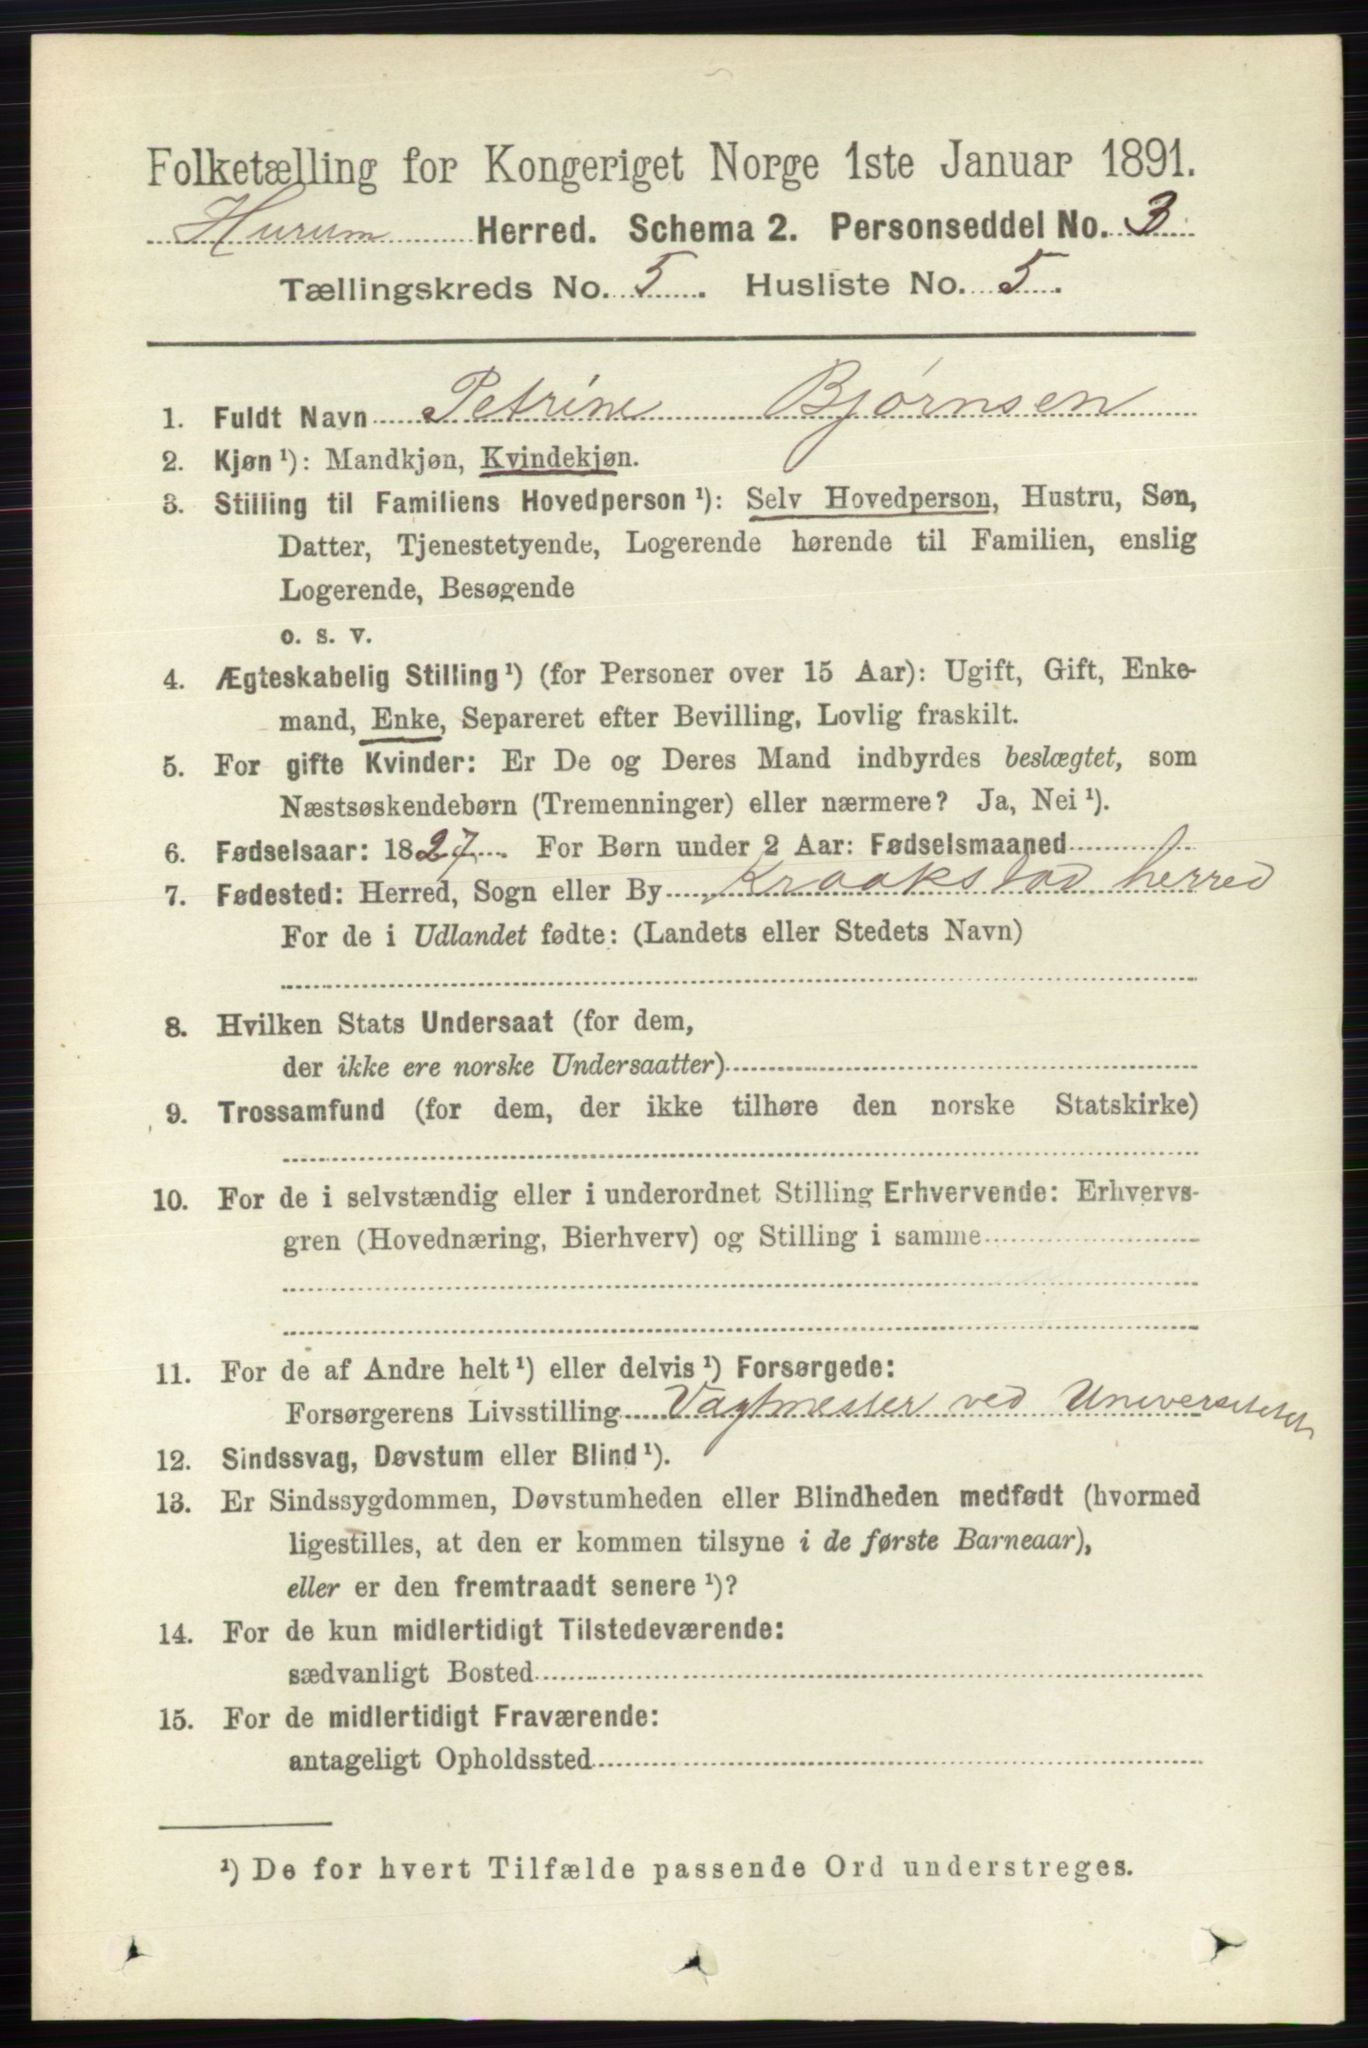 Folketælling for Kongeriget Norge 1ste Januar 1891.
Hurum Herred. Schema 2. Personseddel No. 3
Tællingskreds No. 5. Husliste No. 5.
1. Fuldt Navn Petrine Bjørnsen
2. Kjøn ¹): Mandkjøn, Kvindekjøn.
3. Stilling til Familiens Hovedperson ¹): Selv Hovedperson, Hustru, Søn,
Datter, Tjenestetyende, Logerende hørende til Familien, enslig
Logerende, Besøgende
o. s. v.
4. Ægteskabelig Stilling ¹) (for Personer over 15 Aar): Ugift, Gift, Enke-
mand, Enke, Separeret efter Bevilling, Lovlig fraskilt.
5. For gifte Kvinder: Er De og Deres Mand indbyrdes beslægtet, som
Næstsøskendebørn (Tremenninger) eller nærmere? Ja, Nei ¹).
6. Fødselsaar: 1827. For Børn under 2 Aar: Fødselsmaaned
7. Fødested: Herred, Sogn eller By Kraakstad herred
For de i Udlandet fødte: (Landets eller Stedets Navn)
8. Hvilken Stats Undersaat (for dem,
der ikke ere norske Undersaatter)
9. Trossamfund (for dem, der ikke tilhøre den norske Statskirke)
10. For de i selvstændig eller i underordnet Stilling Erhvervende: Erhvervs-
gren (Hovednæring, Bierhverv) og Stilling i samme
11. For de af Andre helt ¹) eller delvis ¹) Forsørgede:
Forsørgerens Livsstilling Vagtmester ved Universitetet
12. Sindssvag, Døvstum eller Blind ¹).
13. Er Sindssygdommen, Døvstumheden eller Blindheden medfødt (hvormed
ligestilles, at den er kommen tilsyne i de første Barneaar),
eller er den fremtraadt senere ¹)?
14. For de kun midlertidigt Tilstedeværende:
sædvanligt Bosted
15. For de midlertidigt Fraværende:
antageligt Opholdssted
¹) De for hvert Tilfælde passende Ord understreges.